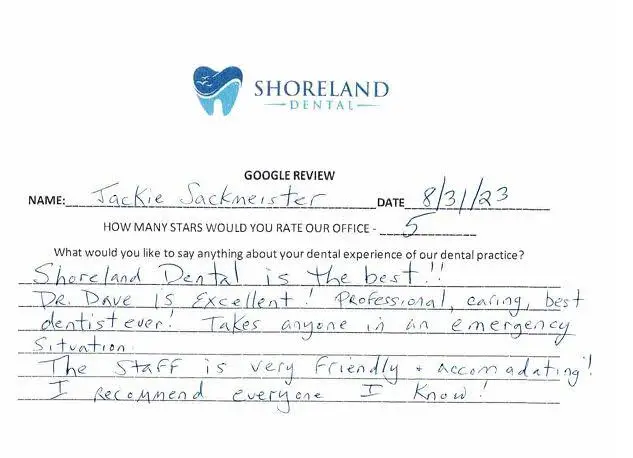 SHORELAND
DENTAL
GOOGLE REVIEW
NAME: Jackie Sackmeister DATE 8/31/23
HOW MANY STARS WOULD YOU RATE OUR OFFICE - 5
What would you like to say anything about your dental experience of our dental practice?
Shoreland Dental is the best!!
DR. Dave is Excellent! Professional, caring, best
dentist ever! Takes anyone in an emergency
Situation.
The Staff is very Friendly + accomadating!
I recommend everyone I Know!